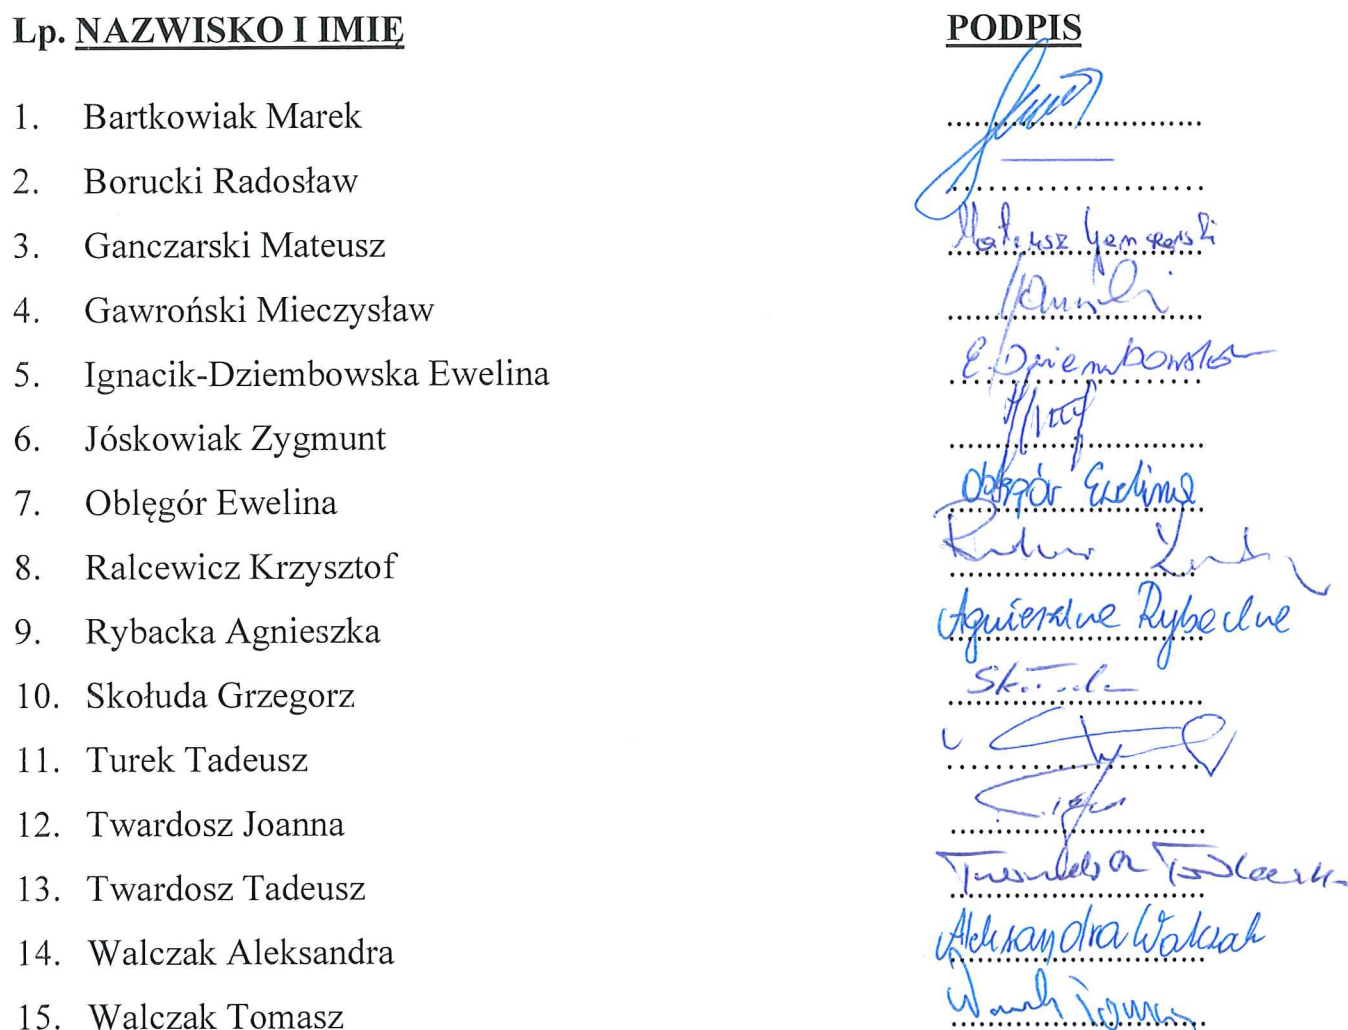 Lp. NAZWISKO I IMIĘ PODPIS
1. Bartkowiak Marek
2. Borucki Radosław
3. Ganczarski Mateusz Mateusz Ganczarski
4. Gawroński Mieczysław
5. Ignacik-Dziembowska Ewelina E. Dziembowska
6. Jóskowiak Zygmunt
7. Oblęgór Ewelina Oblęgór Ewelina
8. Ralcewicz Krzysztof
9. Rybacka Agnieszka Agnieszka Rybacka
10. Skołuda Grzegorz Skołuda
11. Turek Tadeusz
12. Twardosz Joanna
13. Twardosz Tadeusz Twardosz Tadeusz
14. Walczak Aleksandra Aleksandra Walczak
15. Walczak Tomasz Walczak Tomasz